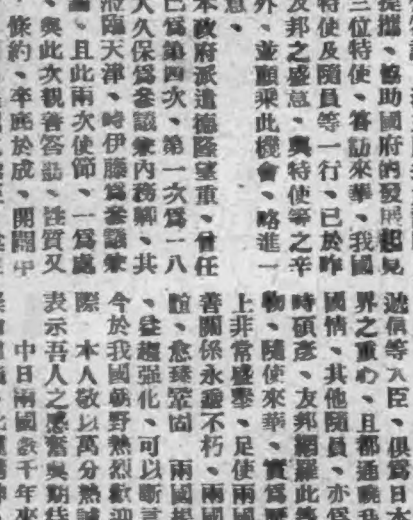 提攜、協助國府的發展起見
三位特使、答訪來華、我國
特使及隨員等一行、已於昨
友邦之盛意、與特使等之辛
外、並願乘此機會、略進一
意、
本政府派遣德隆望重、曾任
已爲第四次、第一次爲一八
人久保爲參議兼內務卿、其
涖臨天津、時伊藤爲參議兼
、且此兩次使節、一爲處
、與此次親善答訪、性質又
條約、卒底於成、開闢中
遞信等大臣、俱爲日本
界之重心、且都通曉我
國情、其他隨員、亦爲
時碩彥、友邦網羅此等
物、隨使來華、實爲歷
上非常盛舉、足使兩國
善關係永垂不朽、兩國
誼、愈臻鞏固 兩國提
、益趨强化、可以斷言
今於我國朝野熱烈歡迎
際 本人敬以萬分熱誠
表示吾人之感奮與期待
中日兩國數千年來